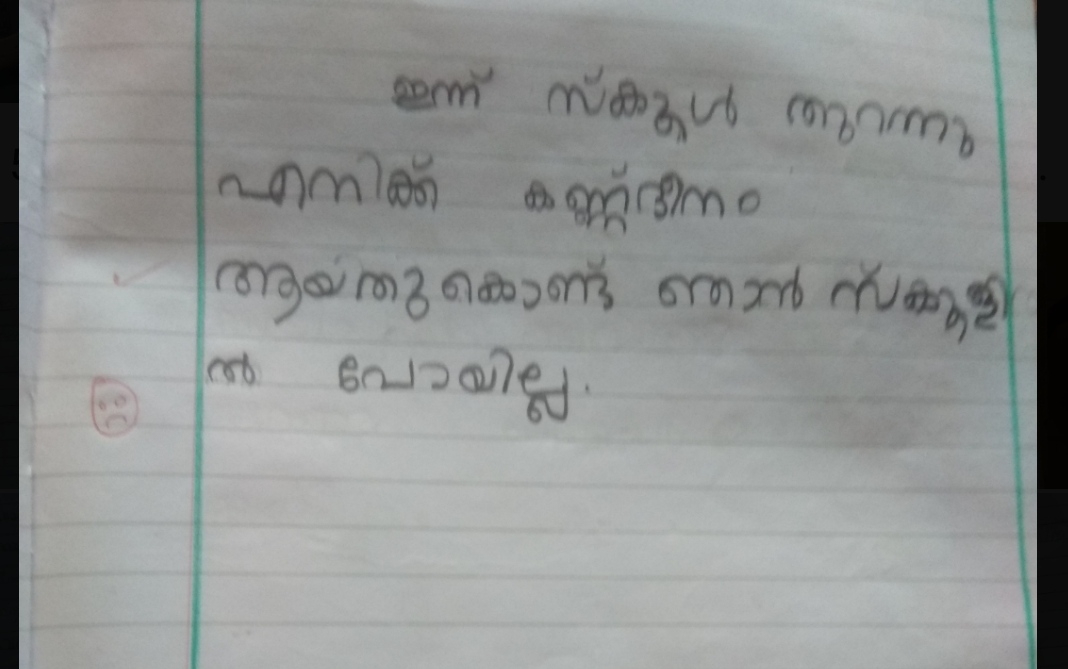 ഇന്ന് സ്കൂൾ തുറന്നു
എനിക്ക് കണ്ണ്ദീനം
ആയതുകൊണ്ട് ഞാൻ സ്കൂളി
ൽ പോയില്ല.